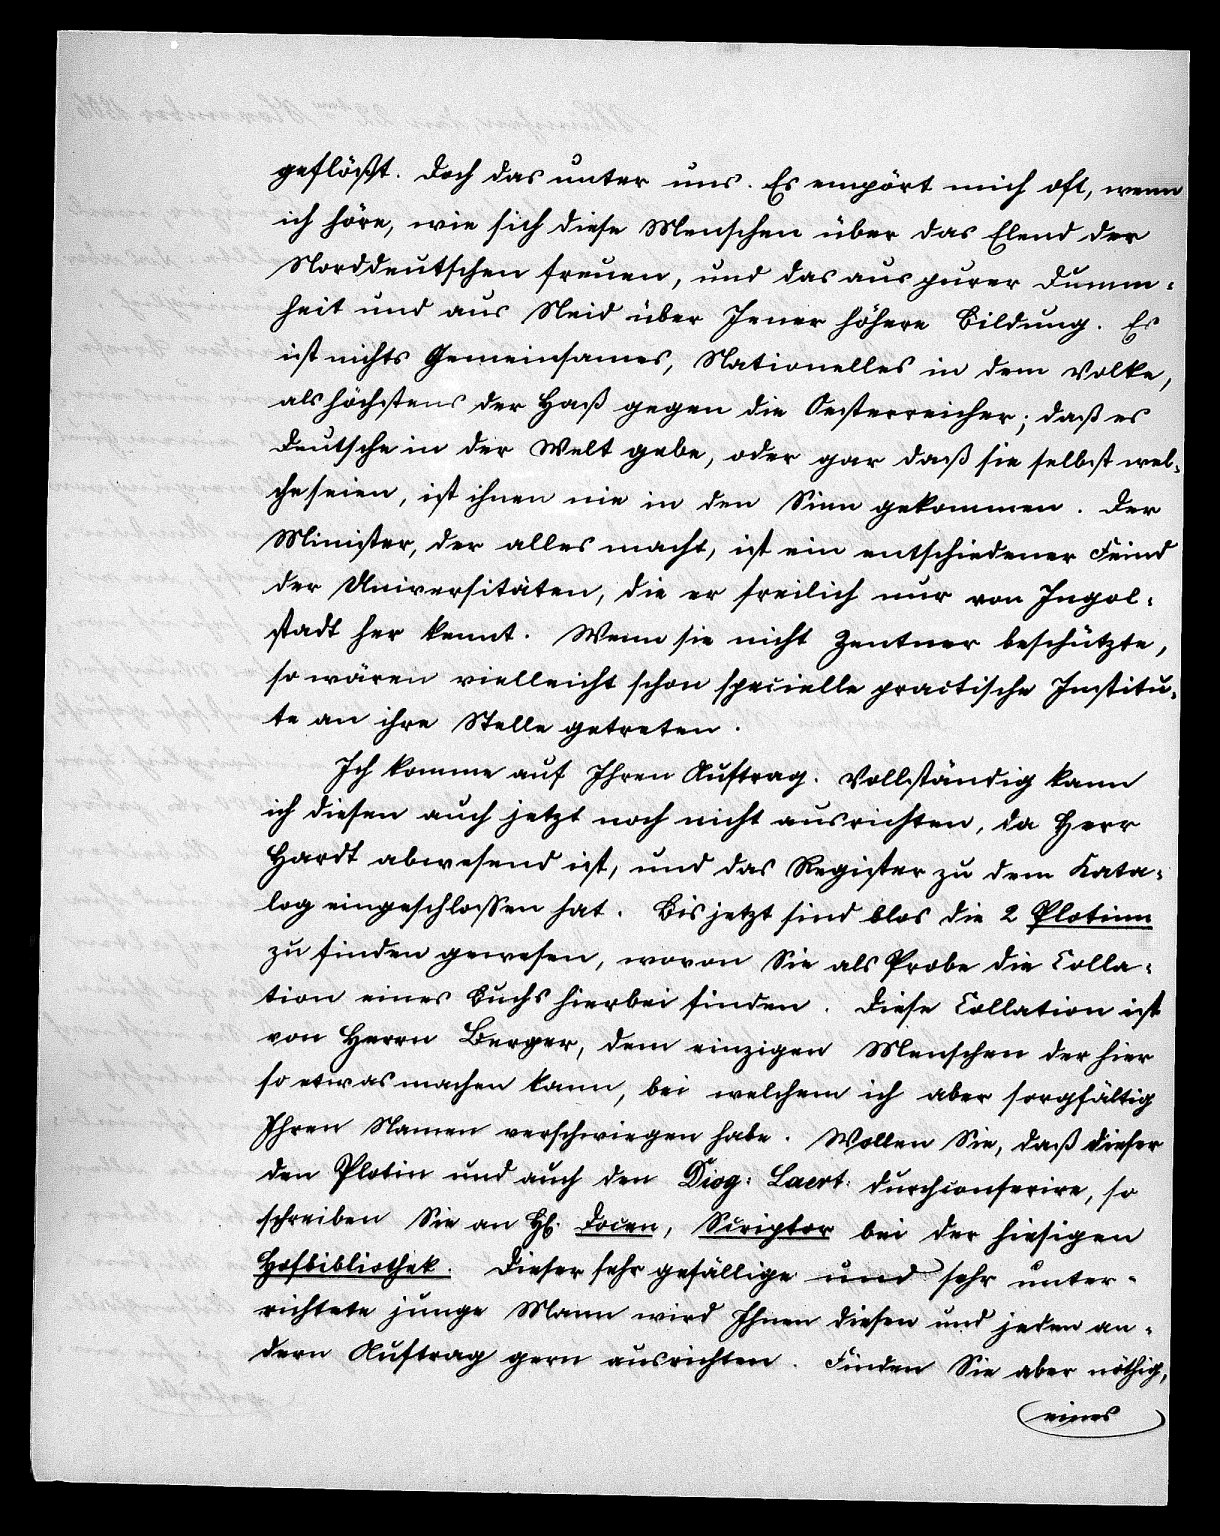 geflößt. Doch das unter uns. Es empört mich oft, wenn
ich höre, wie sich diese Menschen über das Elend der
Norddeutschen freuen, und das aus purer Dumm-
heit und aus Neid über Jener höhere Bildung. Es
ist nichts Gemeinsames, Nationelles in dem Volke,
als höchstens der Haß gegen die Oesterreicher; daß es
Deutsche in der Welt gebe, oder gar daß sie selbst wel-
che seien, ist ihnen nie in den Sinn gekommen. Der
Minister, der alles macht, ist ein entschiedener Feind
der Universitäten, die er freilich nur von Ingol-
stadt her kennt. Wenn sie nicht Zentner beschützte,
so wären vielleicht schon specielle practische Institu-
te an ihre Stelle getreten.
Ich komme auf Ihren Auftrag. Vollständig kann
ich diesen auch jetzt noch nicht ausrichten, da Herr
Hardt abwesend ist, und das Register zu dem Kata-
log eingeschlossen hat. Bis jetzt sind blos die 2 Plotinn
zu finden gewesen, wovon Sie als Probe die Colla-
tion eines Buchs hierbei finden. Diese Collation ist
von Herrn Berger, dem einzigen Menschen der hier
so etwas machen kann, bei welchem ich aber sorgfältig
Ihren Namen verschwiegen habe. Wollen Sie, daß dieser
den Plotin und auch den Diog: Laert: durchconferire, so
schreiben Sie an H. Docen, Scriptor bei der hiesigen
Hofbibliothek. Dieser sehr gefällige und sehr unter-
richtete junge Mann wird Ihnen diesen und jeden an-
dern Auftrag gern ausrichten. Finden Sie aber nöthig,
eines